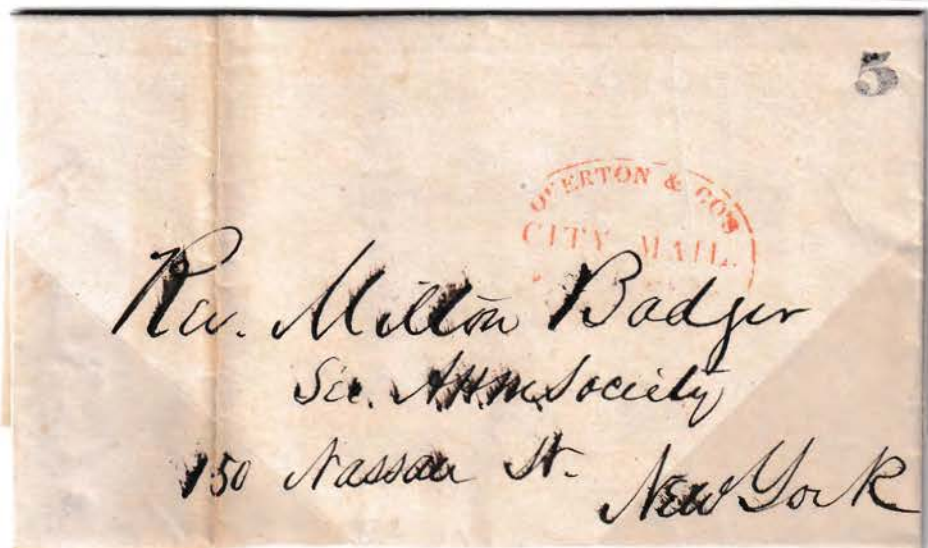 5
OVERTON & CO'S
CITY MAIL.
Rev. Milton Badger
Sec. A.H.M. Society
150 Nassau St.
New York